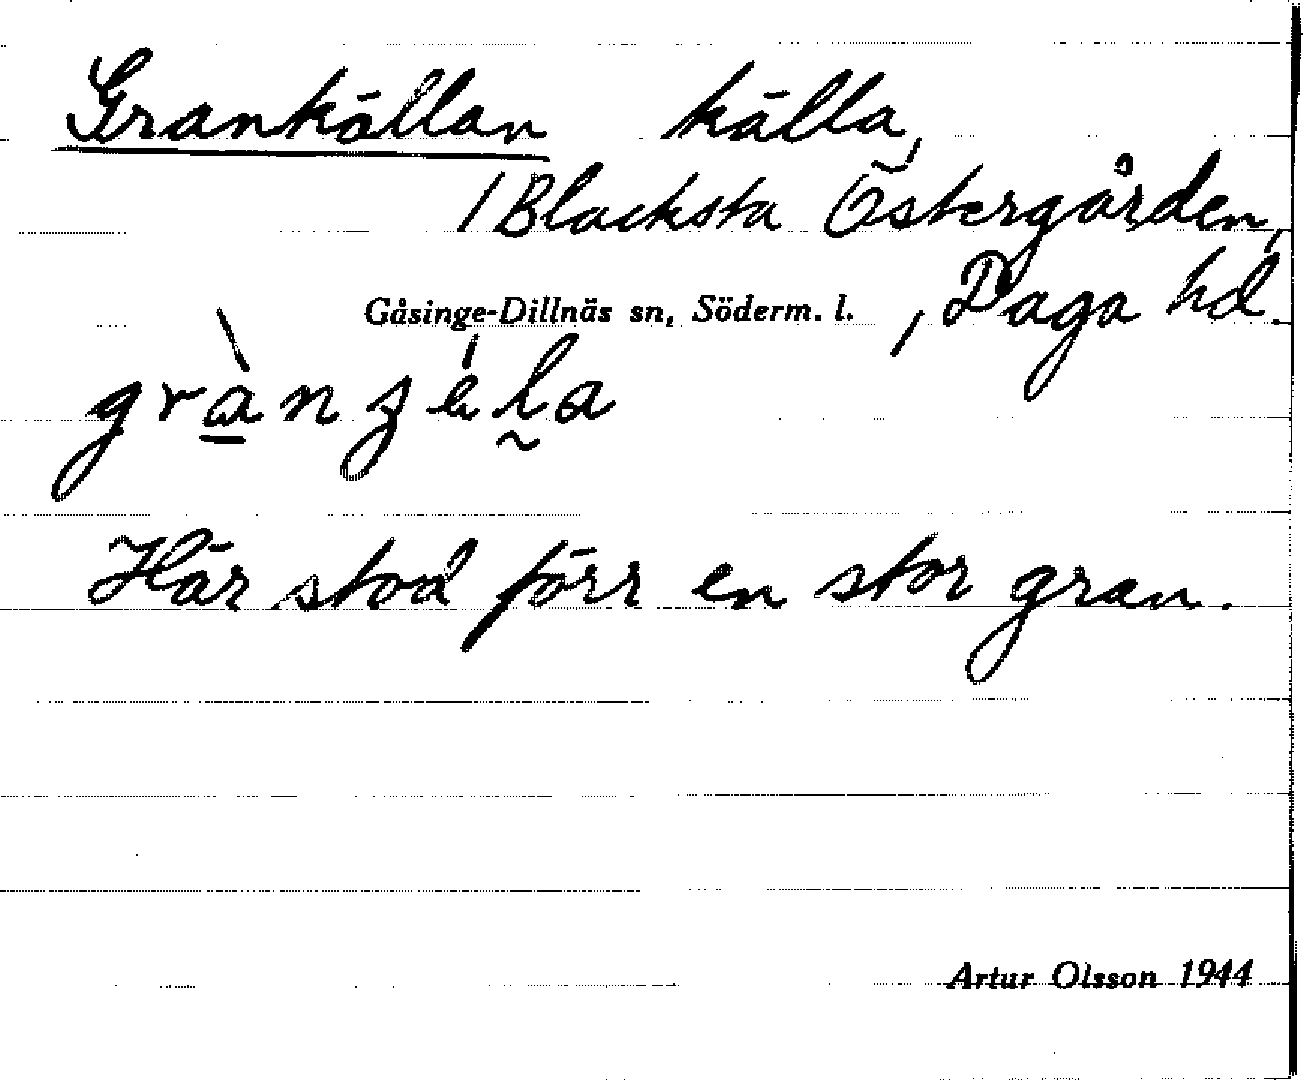 Grankällan källa,
/Blacksta Östergården,
Gåsinge-Dillnäs sn, Söderm. l. , Daga hd.
grànzéla
Här stod förr en stor gran.
Artur Olsson 1944